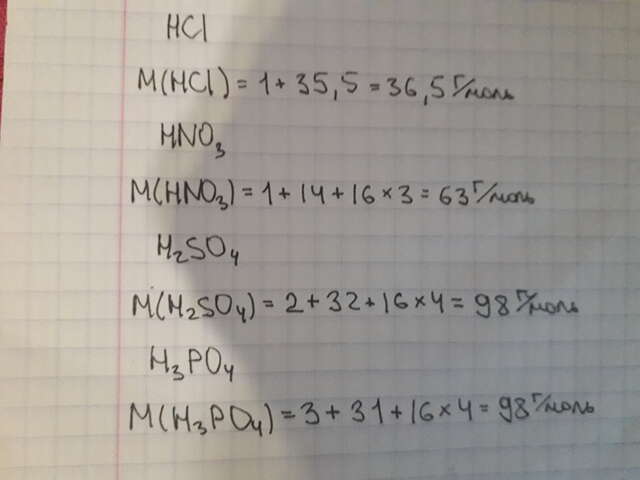 HCl
M(HCl) = 1 + 35,5 = 36,5 г/моль
HNO₃
M(HNO₃) = 1 + 14 + 16 × 3 = 63 г/моль
H₂SO₄
M(H₂SO₄) = 2 + 32 + 16 × 4 = 98 г/моль
H₃PO₄
M(H₃PO₄) = 3 + 31 + 16 × 4 = 98 г/моль